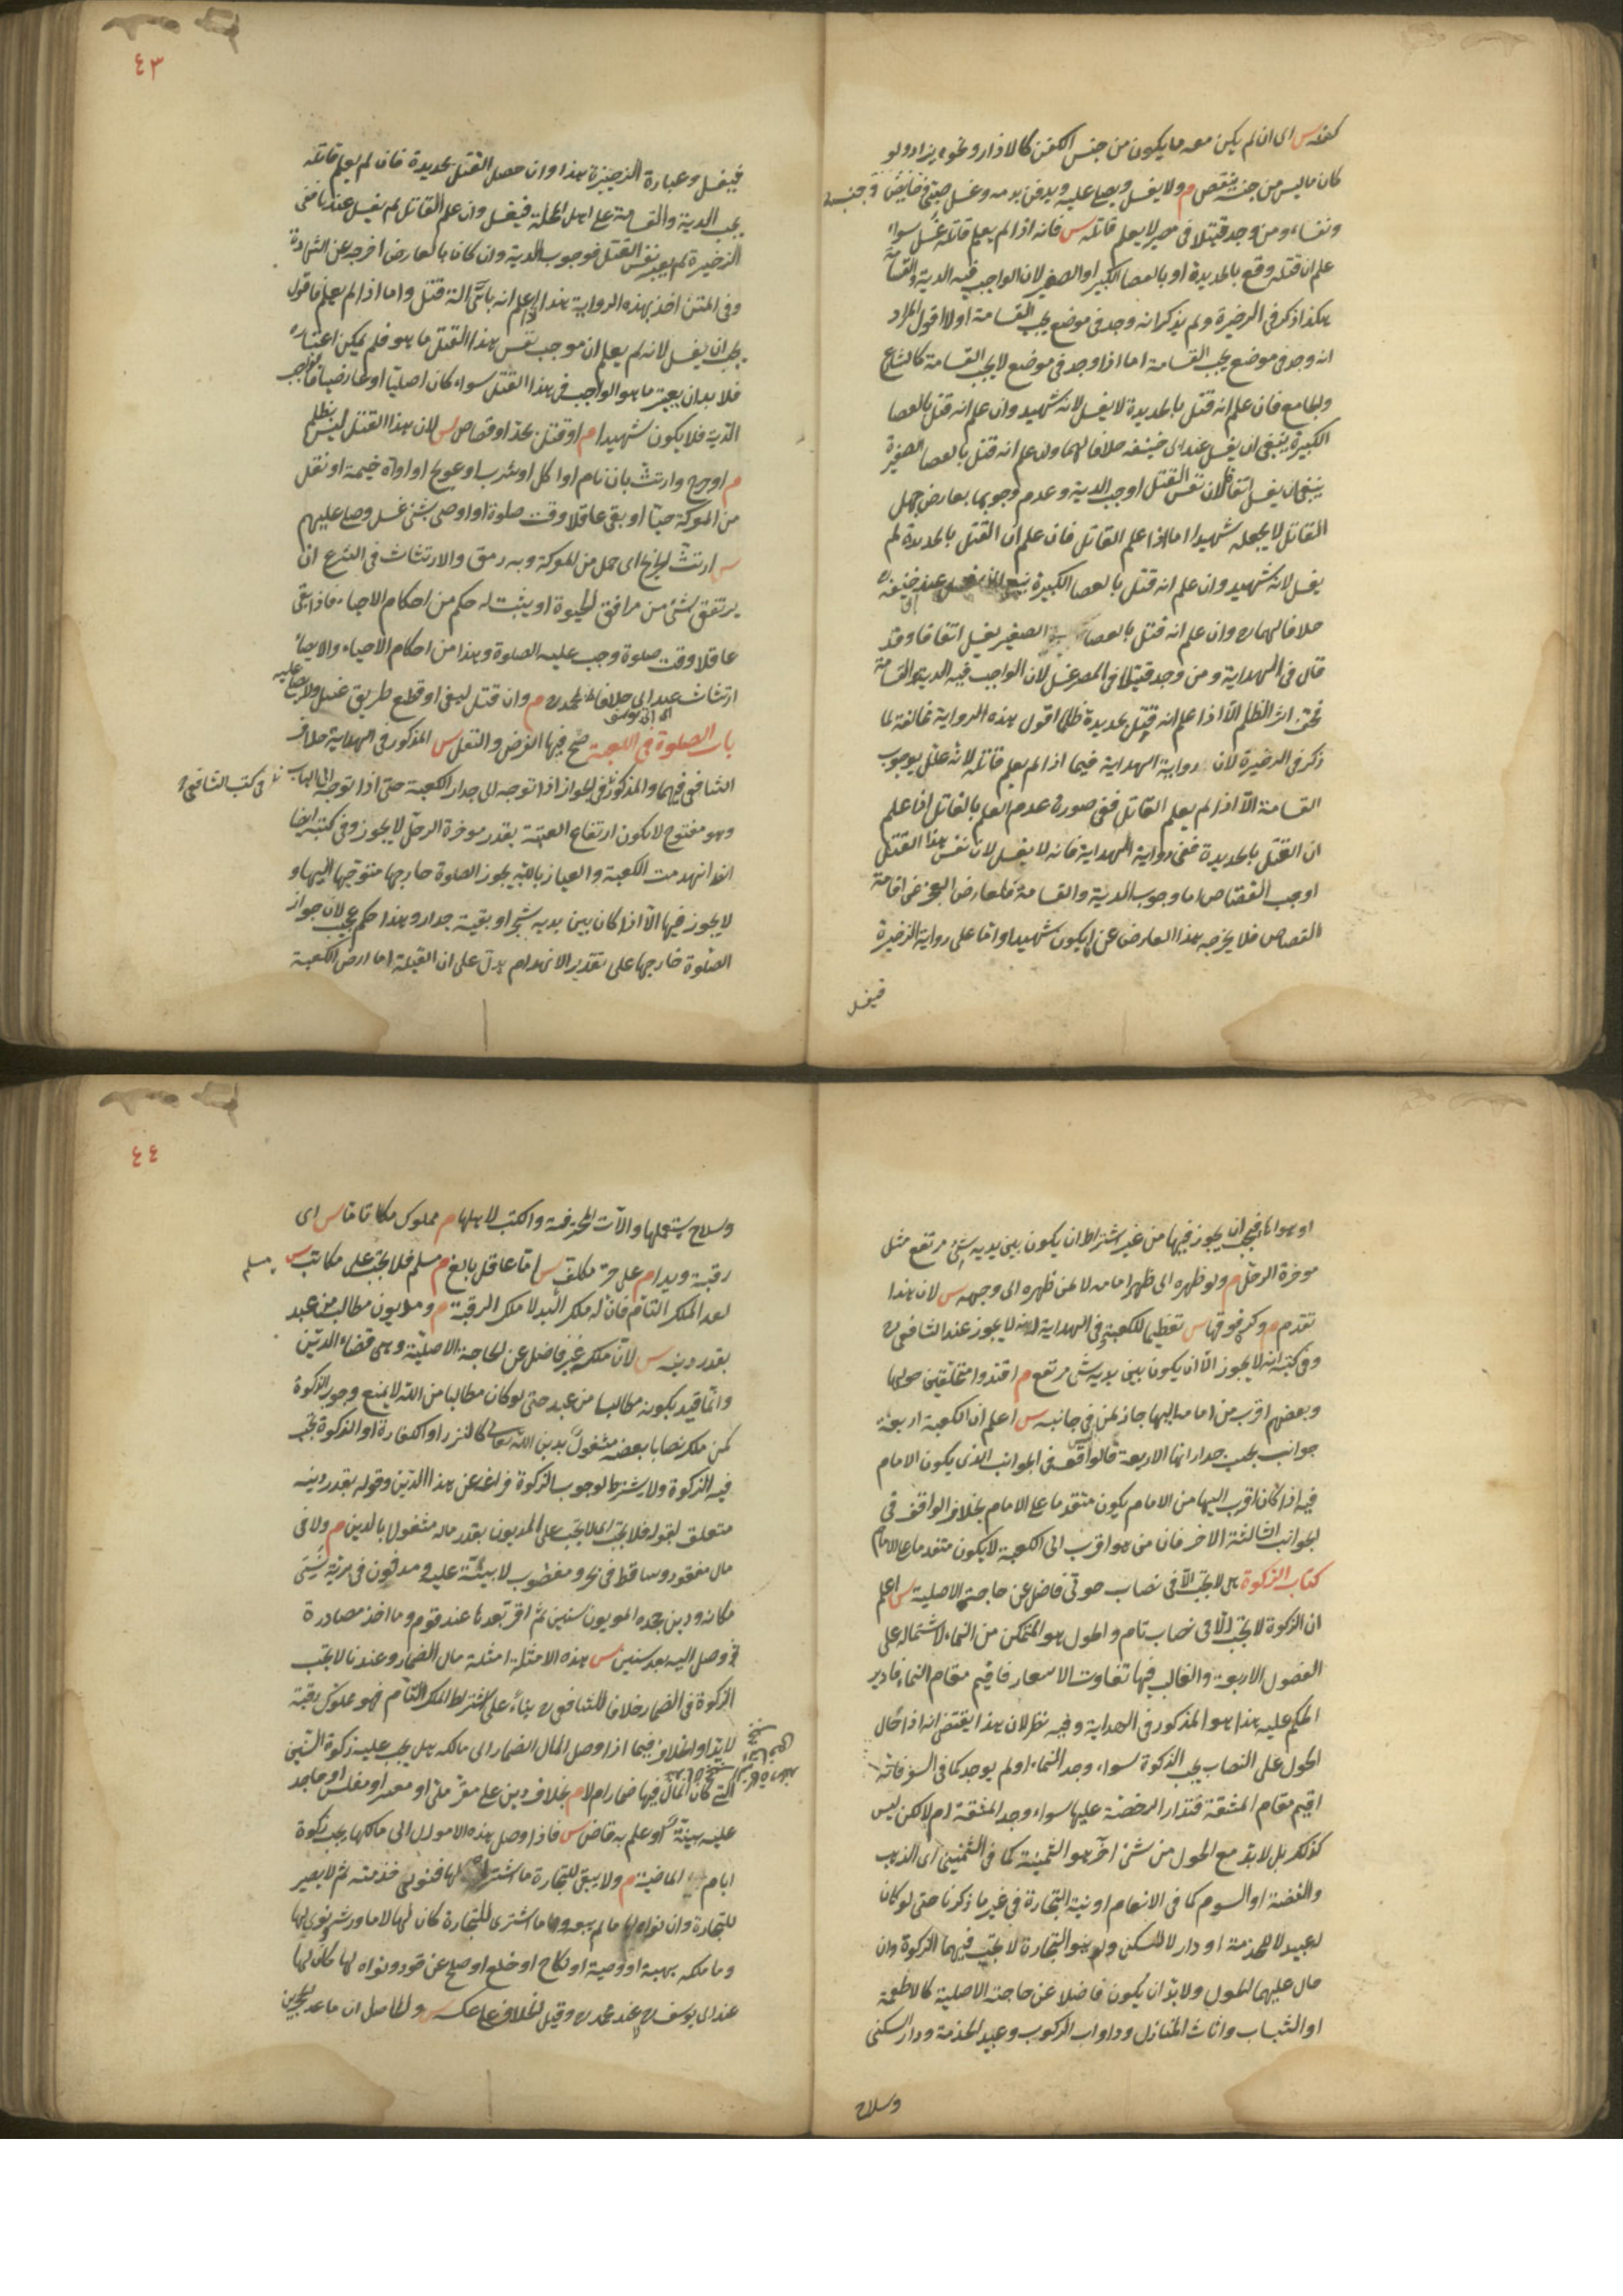 كفنه س اى ان لم يكن معه ما يكون من جنس الكفن كالازار ونحوه يزاد ولو
كان ما ليس من جنسه ينقص م ولا يغسل ويصلى عليه ويدفن بدمه وغسل صبى وحايض وجنب
ونفساء ومن وجد قتيلا فى مصر لا يعلم قاتله س فانه اذا لم يعلم قاتله غسل سواء
علم ان قتله وقع بالحديدة او بالعصا الكبير او الصغير لان الواجب فيه الدية والقسامة
هكذا ذكر فى الذخيرة ولم يذكر انه وجد فى موضع يجب القسامة اولا اقول المراد
انه وجد فى موضع يجب القسامة اما اذا وجد فى موضع لا يجب القسامة كالشارع
والجامع فان علم انه قتل بالحديدة لا يغسل لانه شهيد وان علم انه قتل بالعصا
الكبيرة ينبغى ان يغسل عند ابى حنيفه خلافا لهما وان علم انه قتل بالعصا الصغيرة
ينبغى ان يغسل اتفاقا لان نفس القتل اوجب الدية وعدم وجوبها بعارض جهل
القاتل لا يجعله شهيدا اما اذا علم القاتل فان علم ان القتل بالحديدة لم
يغسل لانه شهيد وان علم انه قتل بالعصا الكبيرة ينبغى ان يغسل عند ابى حنيفه
خلافا لهما وان علم انه قتل بالعصا الصغير يغسل اتفاقا وقد
قال فى الهداية ومن وجد قتيلا فى المصر غسل لان الواجب فيه الدية والقسامة
فخف اثر الظلم الا اذا علم انه قتل بحديدة ظلما اقول هذه الرواية مخالفة لما
ذكر فى الذخيرة لان رواية الهداية فيما اذا لم يعلم قاتله لانه علل بوجوب
القسامة الا اذا لم يعلم القاتل ففى صورة عدم العلم بالقاتل اذا علم
ان القتل بالحديدة ففى رواية الهداية فانه لا يغسل لان نفس هذا القتل
اوجب القصاص اما وجوب الدية والقسامة فلعارض العجز عن اقامة
القصاص فلا يخرجه هذا العارض عن ان يكون شهيدا واما على رواية الذخيرة
فيغسل
٤٣
فيغسل وعبارة الذخيرة هذا وان حصل القتل بحديدة فان لم يعلم قاتله
يجب الدية والقسامة على اهل المحلة فيغسل وان علم القاتل لم يغسل عندنا ففى
الذخيرة لم يعتبر نفس القتل فوجوب الدية وان كان بالعارض اخرجه عن الشهادة
وفى المتن اخذ بهذه الرواية هذا اذا علم انه باى الة قتل واما اذا لم يعلم فاقول
يجب ان يغسل لانه لم يعلم ان موجب نفس هذا القتل ما هو فلم يمكن اعتباره
فلا بد ان يعتبر ما هو الواجب فى هذا القتل سواء كان اصليا او عارضيا فالواجب
الدية فلا يكون شهيدا م او قتل بحد او قصاص س لان هذا القتل ليس بظلم
م او جرح وارتث بان نام او اكل او شرب او عولج او اواه خيمة او نقل
من المعركة حيا او بقى عاقلا وقت صلوة او اوصى بشئ غسل وصلى عليهم
س ارتث الجريح اى حمل من المعركة وبه رمق والارتثاث فى الشرع ان
يرتفق بشئ من مرافق الحيوة او يثبت له حكم من احكام الاحياء فاذا بقى
عاقلا وقت صلوة وجب عليه الصلوة وهذا من احكام الاحياء والايصاء
ارتثاث عند ابى يوسف خلافا لمحمد م وان قتل لبغى او قطع طريق غسل ولا يصلى عليه
باب الصلوة فى الكعبة صح فيها الفرض والنفل س المذكور فى الهداية خلاف
الشافعى فيهما والمذكور فى كتب الشافعى الجواز اذا توجه الى جدار الكعبة حتى اذا توجه الى الباب
وهو مفتوح لا يكون ارتفاع العتبة بقدر مؤخرة الرحل لا يجوز وفى كتبه ايضا
انه انهدمت الكعبة والعياذ بالله يجوز الصلوة خارجها متوجها اليها و
لا يجوز فيها الا اذا كان بين يديه شجر او بقية جدار وهذا حكم عجيب لان جواز
الصلوة خارجها على تقدير الانهدام يدل على ان القبلة اما ارض الكعبة
او هواءها فيجب ان يجوز فيها من غير اشتراط ان يكون بين يديه شئ مرتفع مثل
مؤخرة الرحل م ولو ظهره الى ظهر امامه لا لمن ظهره الى وجهه س لان هذا
تقدم م وكره فوقها س تعظيما للكعبة وفى الهداية انه لا يجوز عند الشافعى
وفى كتبه انه لا يجوز الا ان يكون بين يديه شئ مرتفع م اقتدوا متحلقين حولها
وبعضهم اقرب من امامه اليها جاز لمن ليس فى جانبه س اعلم ان الكعبة اربعة
جوانب بحسب جدارانها الاربعة فالواقف فى الجوانب الذى يكون الامام
فيه اذا كان اقرب اليها من الامام يكون متقدما على الامام بخلاف الواقف فى
الجوانب الثلثة الاخر فان من هو اقرب الى الكعبة لا يكون متقدما على الامام
كتاب الزكوة هى لا تجب الا فى نصاب حولى فاضل عن حاجته الاصلية س اعلم
ان الزكوة لا تجب الا فى نصاب تام والحول هو الممكن من النماء لاشتماله على
الفصول الاربعة والغالب فيها تفاوت الاسعار فاقيم مقام النماء فادير
الحكم عليه هذا هو المذكور فى الهداية وفيه نظر لان هذا يقتضى انه اذا حال
الحول على النصاب يجب الزكوة سواء وجد النماء او لم يوجد كما فى السفر فانه
اقيم مقام المشقة فتدار الرخصة عليها سواء وجد المشقة ام لا لكن ليس
كذلك بل لا بد مع الحول من شئ آخر هو الثمنية كما فى الثمنين اى الذهب
والفضة او السوم كما فى الانعام او نية التجارة فى غير ما ذكرنا حتى لو كان
له عبيد لا للخدمة او دار لا للسكنى ولم ينو التجارة لا تجب فيهما الزكوة وان
حال عليهما الحول ولا بد ان يكون فاضلا عن حاجته الاصلية كالاطعمة
او الثياب واثاث المنازل ودواب الركوب وعبيد الخدمة ودار السكنى
وسلاح
٤٤
وسلاح يستعملها والآت المحترفة والكتب لاهلها م مملوك ملكا تاما س اى
رقبة ويدا م على حر مكلف س اى عاقل بالغ م مسلم فلا تجب على مكاتب س
لعدم الملك التام فان له ملك اليد لا ملك الرقبة م ومديون مطالب من عبد
بقدر دينه س لان ملكه غير فاضل عن الحاجة الاصلية وهى قضاء الدين
وانما قيد بكونه مطالبا من عبد حتى لو كان مطالبا من الله لا يمنع وجوب الزكوة
كمن ملك نصابا بعضه مشغول بدين الله تعالى كالنذر او الكفارة او الزكوة تجب
فيه الزكوة ولا يشترط لوجوب الزكوة فراغه عن هذا الدين وقوله بقدر دينه
متعلق بقوله فلا تجب اى لا يجب على المديون بقدر ماله مشغولا بالدين م ولا فى
مال مفقود وساقط فى بحر ومغصوب لا بينة عليه ومدفون فى برية نسى
مكانه ودين جحده المديون سنين ثم اقر بعدها عند قوم وما اخذ مصادرة
ثم وصل اليه بعد سنين س هذه الامثلة امثلة مال الضمار وعندنا لا يجب
الزكوة فى الضمار خلافا للشافعى بناء على اشتراط الملك التام فهو مملوك رقبة
لا يدا والخلاف فيما اذا وصل المال الضمار الى مالكه هل يجب عليه زكوة السنين
التى كان المال فيها ضمارا ام لا م بخلاف دين على مقر ملئ او معسر او مفلس او جاحد
عليه بينة او علم به قاض س فاذا وصل هذه الاموال الى مالكها يجب زكوة
ايام الماضية م ولا يبقى للتجارة ما اشتراه لها فنوى خدمته ثم لا يصير
للتجارة وان نواه لها ما لم يبعه وما اشترى للتجارة كان لها لا ما ورثه ونوى لها
وما ملكه بهبة او وصية او نكاح او خلع او صلح عن قود ونواه لها كان لها
عند ابى يوسف لا عند محمد وقيل الخلاف على عكسه س والحاصل ان ما عدا الحجرين